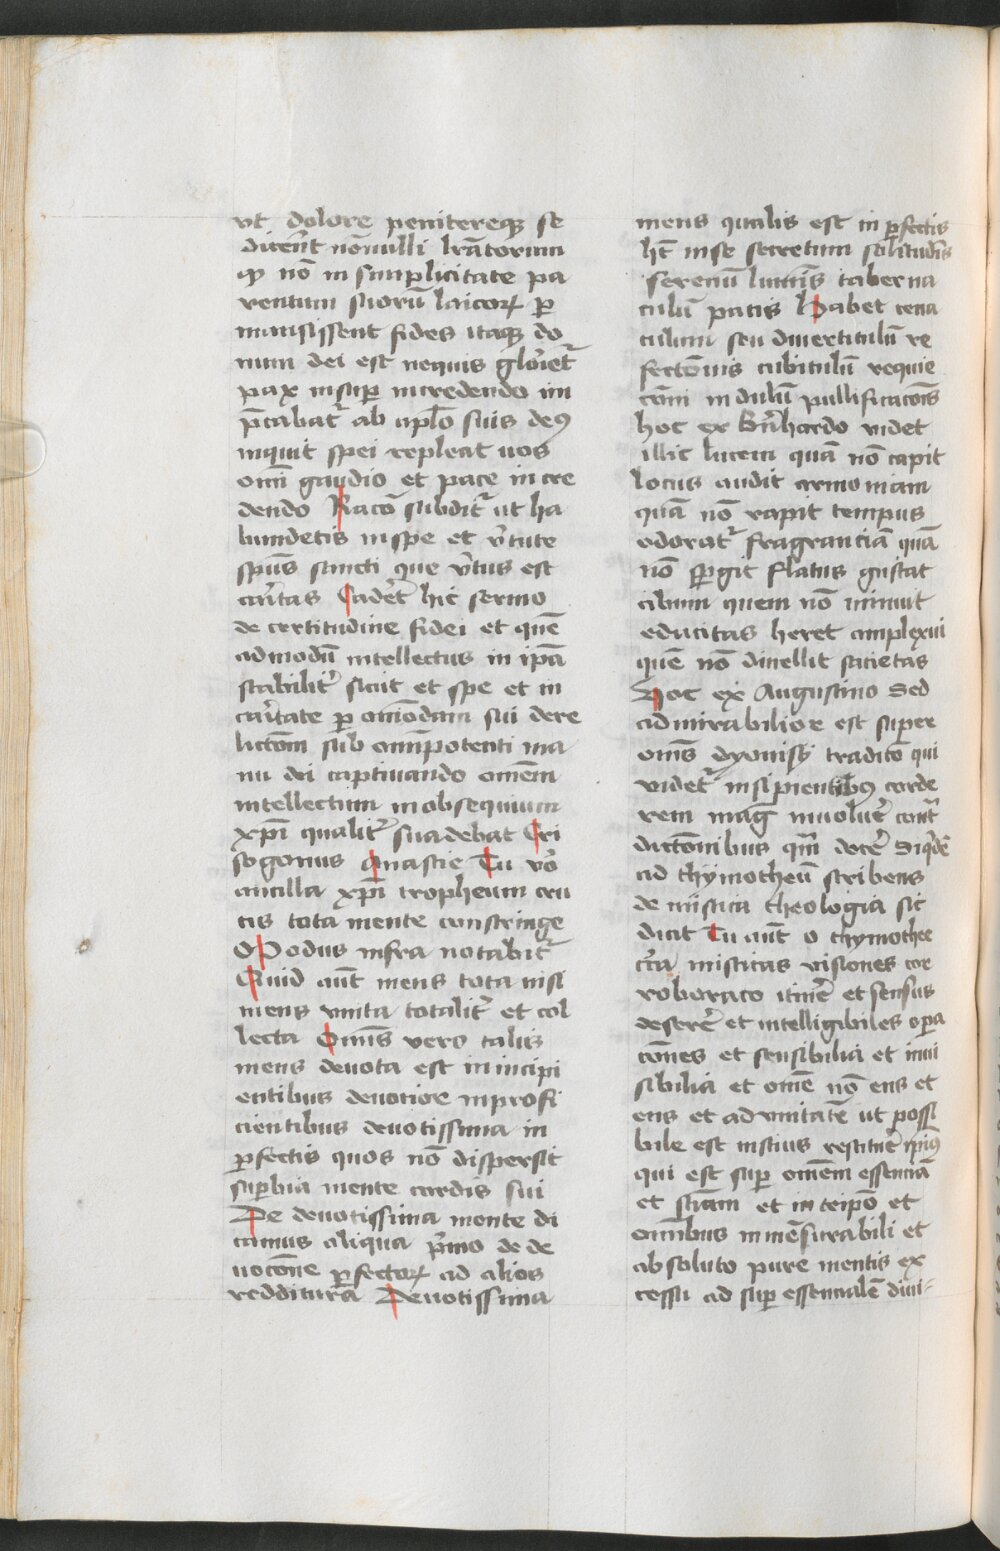 vt dolore penitereqꝫ se
dicer̄t nōnulli lr̄atorum
qꝫ nō in simplicitate pa
rentum suorū laicoꝝ ꝑ
mansissent fides itaqꝫ do
num dei est nequis glori̾etᷣ
pax insuꝑ in credendo im
p̄cabatᷣ ab apl̄o suis deꝰ
inquit spei repleat uos
omī gaudio et pace in cre
dendo Racō subditᷣ ut ha
bundetis in spe et v̾tute
sp̄us sancti que v̾tus est
caritas Cader̄t hic sermo
de certitudine fidei et quē
admodū intellectus in ip̄a
stabilit̾ sicut et spe et in
caritate ꝑ om̄odam sui dere
lictōem sub om̄ipotenti ma
nu dei captiuando omēm
intellectum in obsequium
xp̄i qualit̾ suadebat Cri
sogonus Anastasie Tu v̾o
ancilla xp̄i tropheum cru
cis tota mente constringe
Modus infra notabitᷣ
Quid aūt mens tota nisi
mens vnita totalit̾ et col
lecta Om̄is vero talis
mens deuota est in incipi
entibus deuotior in profi
cientibus deuotissima in
ꝑfectis quos nō dispersit
suꝑbia mente cordis sui
De deuotissima mente di
camus aliqua p̾mo de de
uocōne ꝑfectoꝝ ad alios
redditura Deuotissima
mens qualis est in ꝑfectis
hēt in se secretum solitudīs
serenū lumīs taberna
culū pacis Habet cena
culum seu diuerticulū re
fectōnis cubiculū requie
cōni in dulcū pullificacōis
hoc ex Bern̄hardo videt
illic lucem quā nō capit
locus audit armoniam
quā nō rapit tempus
odoratᷣ fragranciā quā
nō sꝑgit flatus gustat
cibum quem nō minuit
edacitas heret amplexui
quē nō diuellit sacietas
Hoc ex Augustino Sed
admirabilior est super
om̄s dyonisij tradicō qui
videtᷣ insipientibꝰ corde
rem mag̾ inuoluer̾ cont̾
dictōnibus qm̄ docer̾ Siq̾dē
ad thymotheū scribens
de mistica theologia sic
dicit Tu aūt o thymothee
cir̄ca misticas visiones cor
roborato itiner̾ et sensus
deserer̾ et intelligibiles oꝑa
cōnes et sensibilia et inui
sibilia et omē nō ens et
ens et ad vnitatē ut possi
bile est inscius restituer̾ ipīꝰ
qui est suꝑ omēm essenciā
et sciam et in teipō et
omībus in mēsurabili et
absoluto pure mentis ex
cessu ad suꝑ essencialē diui-